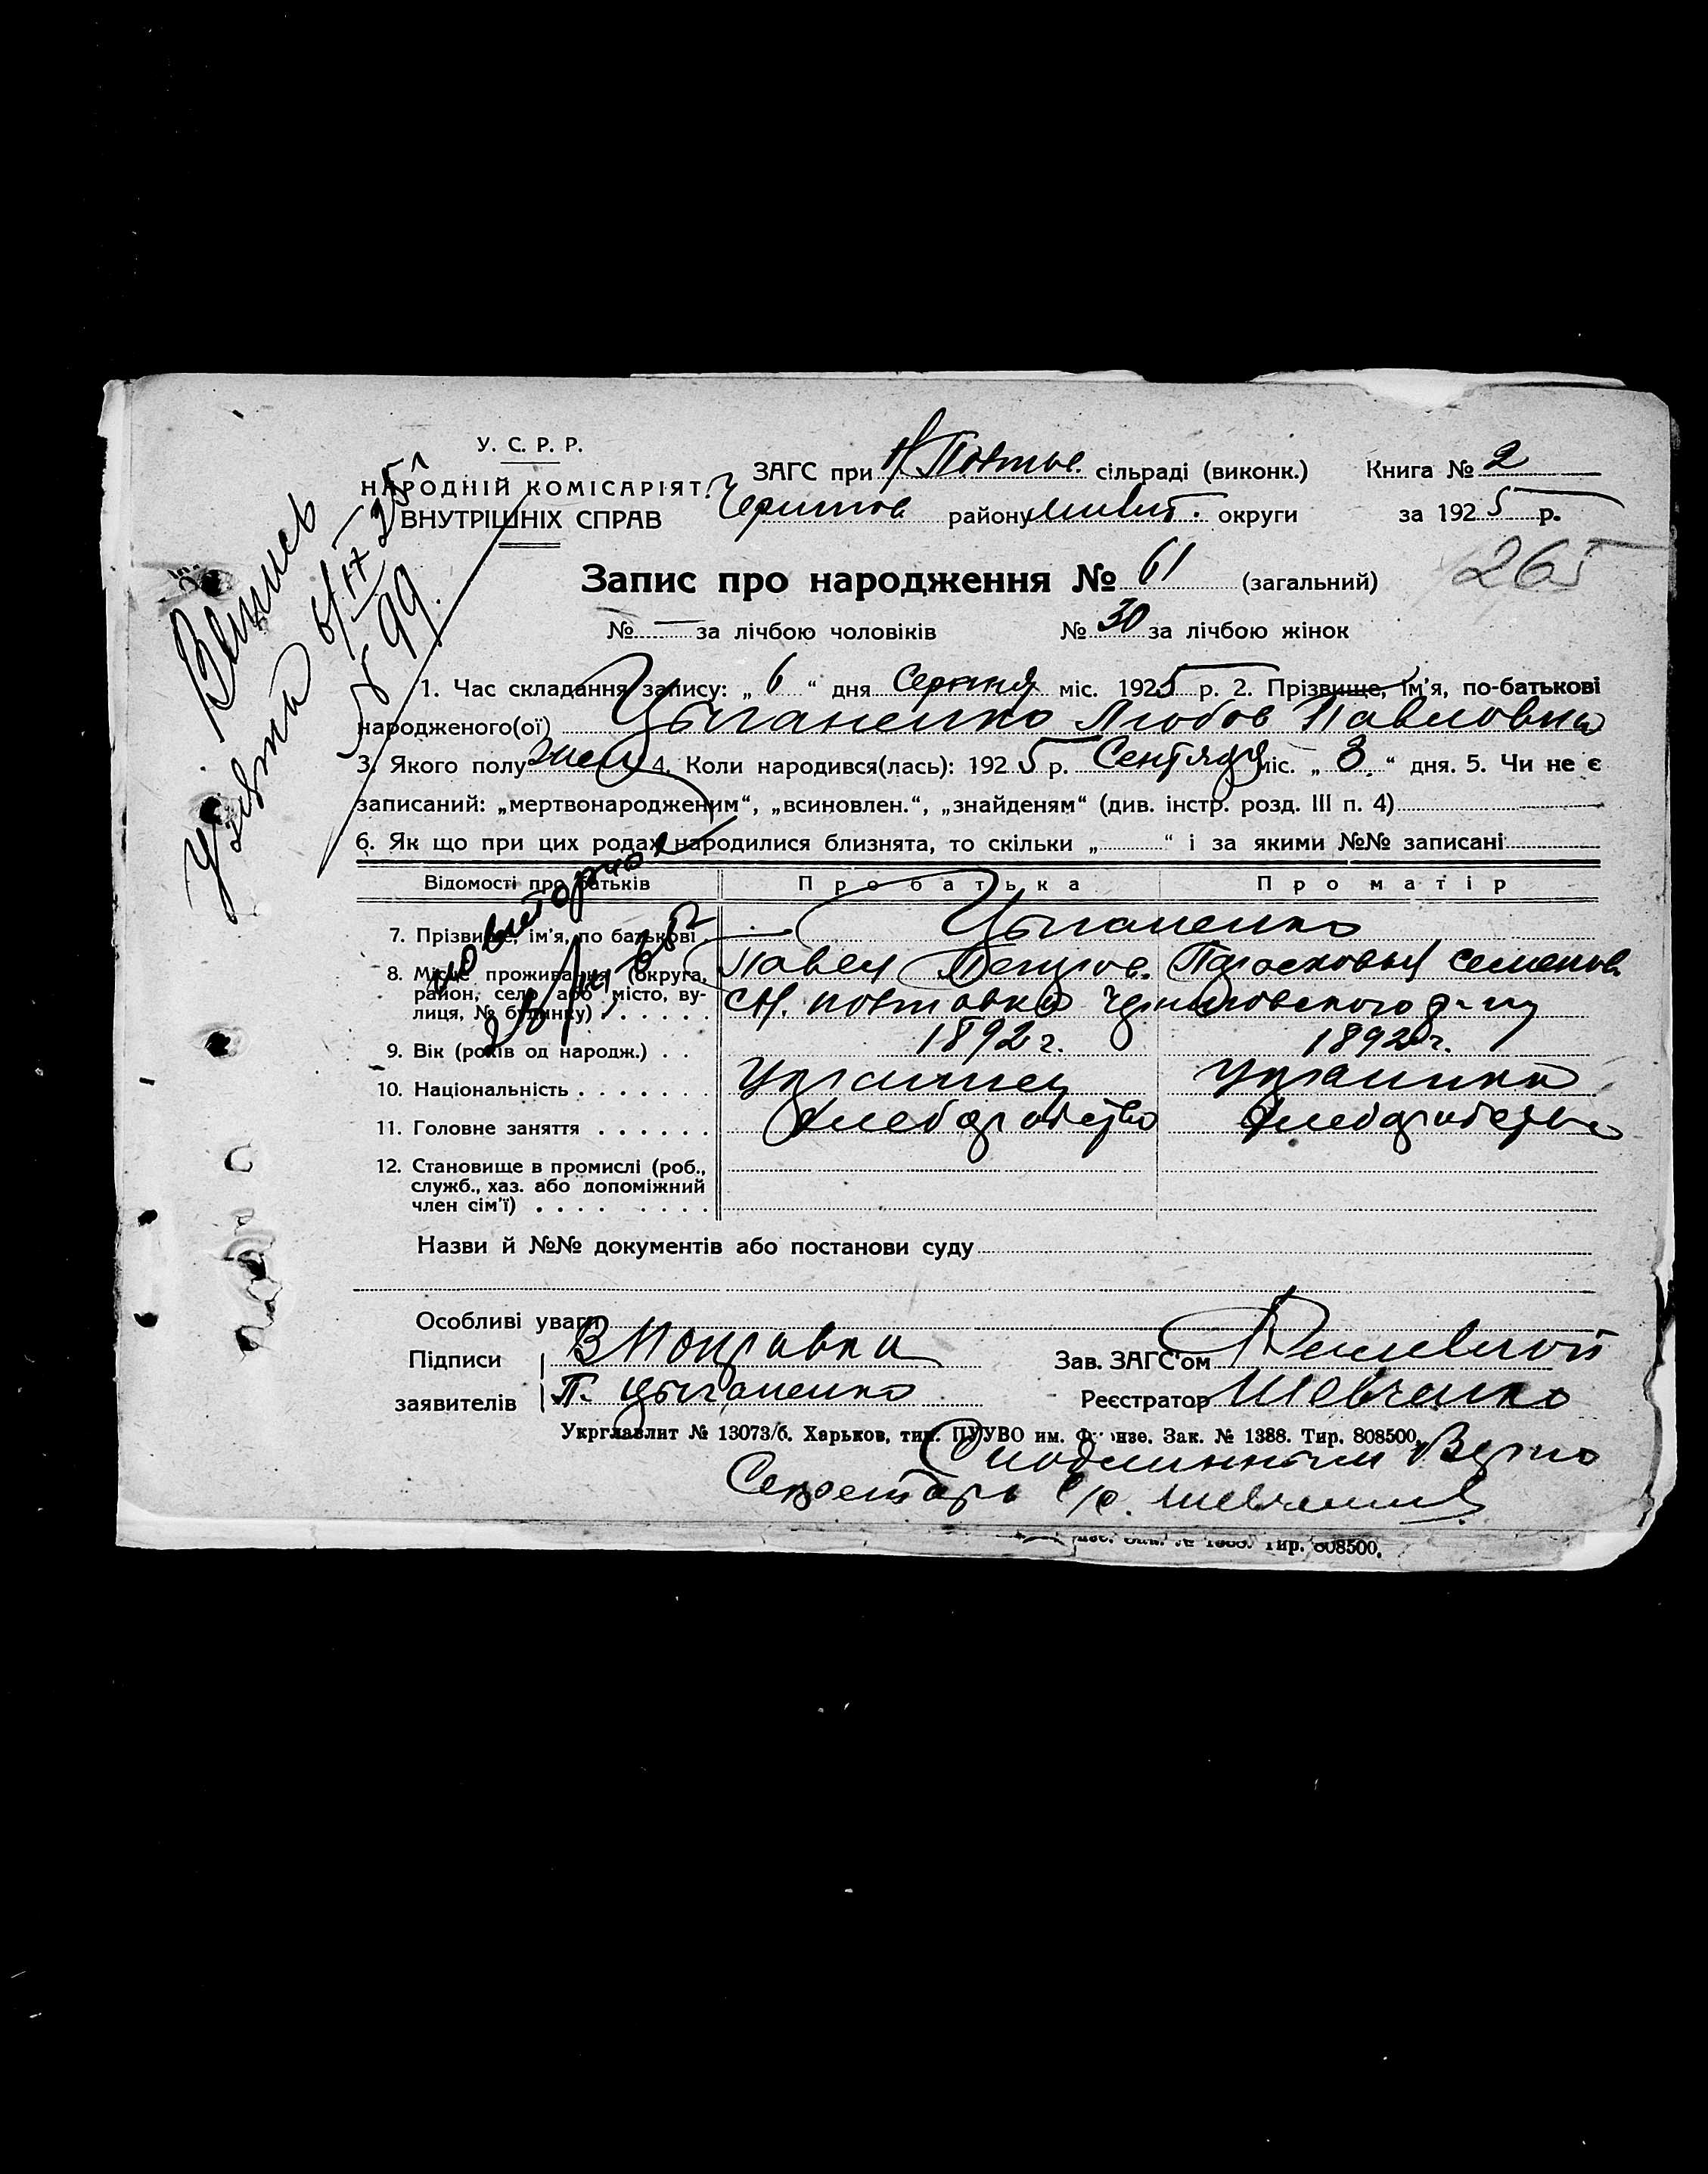 У. С. Р. Р.
НАРОДНІЙ КОМІСАРІЯТ
ВНУТРІШНІХ СПРАВ
ЗАГС при сільраді (виконк.) Книга № 2
району округи за 1925 р.
Запис про народження № 61 (загальний)
265
№ — за лічбою чоловіків № 30 за лічбою жінок
1. Час складання запису: „ 6 “ дня міс. 1925 р. 2. Прізвище, ім'я, по-батькові
народженого(ої) Цыганенко Любов Павловна
3. Якого полу жен 4. Коли народився(лась): 1925 р. Сентября міс. „ 3 “ дня. 5. Чи не є
записаний: „мертвонародженим“, „всиновлен.“, „знайденям“ (див. інстр. розд. III п. 4)
6. Як що при цих родах народилися близнята, то скільки „ “ і за якими №№ записані
Відомості про батьків Про батька Про матір
7. Прізвище, ім'я, по батькові Цыганенко
Павел Петров. Парасковья Семенов.
8. Місце проживання (округа,
район, село або місто, ву-
лиця, № будинку)
9. Вік (років од народж.) 1892 г. 1892 г.
10. Національність Украинец Украинка
11. Головне заняття Хлеборобство Хлеборобство
12. Становище в промислі (роб.,
служб., хаз. або допоміжний
член сім'ї)
Назви й №№ документів або постанови суду
Особливі уваги
Підписи Зав. ЗАГС'ом
заявителів П. Цыганенко Реєстратор Шевченко
Укрглавлит № 13073/б. Харьков, тип. ПУУВО им. Фрунзе. Зак. № 1388. Тир. 808500.
С подлинным Верно
Секретарь с/с. Шевченко
Тир. 808500.
Випись